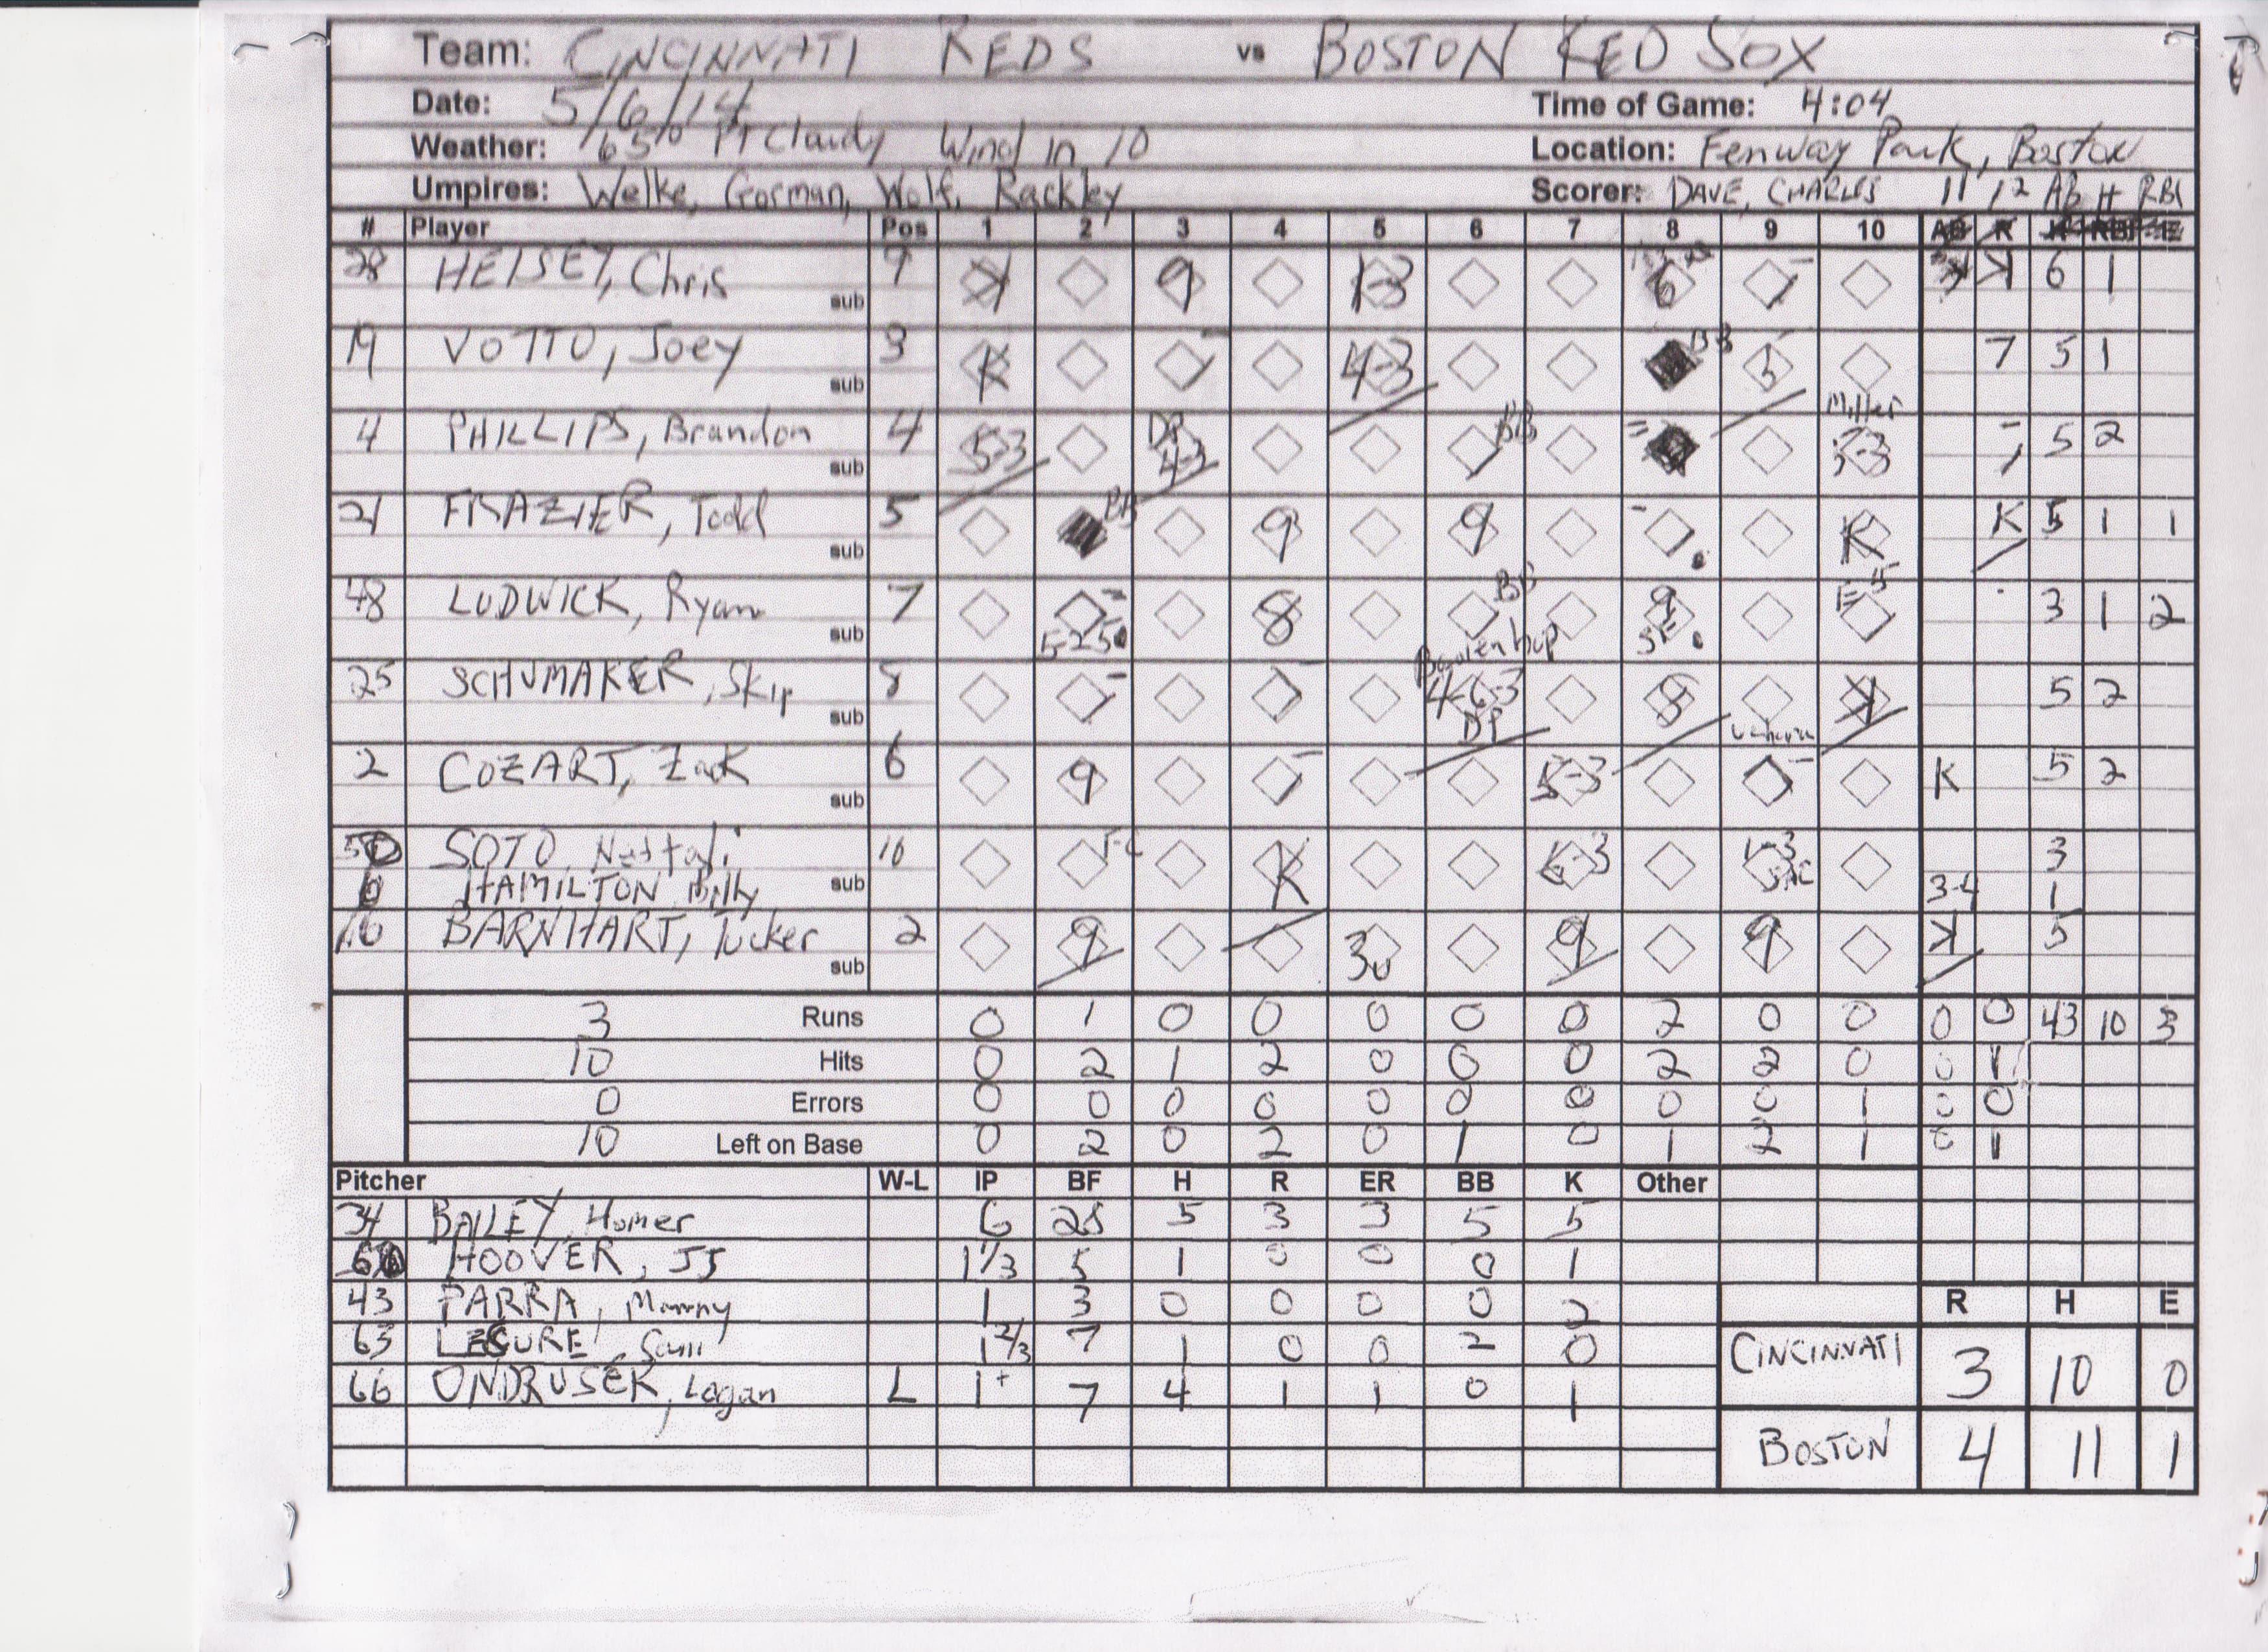 Team: CINCINNATI REDS vs BOSTON RED SOX
Date: 5/6/14 Time of Game: 4:04
Weather: 65° Pt Cloudy Wind in 10 Location: Fenway Park, Boston
Umpires: Welke, Gorman, Wolf, Rackley Scorer: DAVE, CHARLES 11 12 AB H RBI
# Player Pos 1 2 3 4 5 6 7 8 9 10
28 HEISEY, Chris 9 9 1-3 6 6 1
sub
19 VOTTO, Joey 3 K 4-3 BB 5 7 5 1
sub
4 PHILLIPS, Brandon 4 5-3 DP 4-3 BB = Miller 5-3 5 2
sub
21 FRAZIER, Todd 5 BB 9 9 K K 5 1 1
sub
48 LUDWICK, Ryan 7 5-2-5 8 BB 9 SF E5 3 1 2
sub
25 SCHUMAKER, Skip 8 4-6-3 DP 8 5 2
sub
2 COZART, Zack 6 9 5-3 K 5 2
sub
SOTO, Neftali 10 K 6-3 1-3 SAC 3
6 HAMILTON Billy sub 3-4 1
16 BARNHART, Tucker 2 9 3U 9 9 5
sub
3 Runs 0 1 0 0 0 0 0 2 0 0 0 0 43 10 3
10 Hits 0 2 1 2 0 0 0 2 2 0 0 1
0 Errors 0 0 0 0 0 0 0 0 0 1 0 0
10 Left on Base 0 2 0 2 0 1 0 1 2 1 0 1
Pitcher W-L IP BF H R ER BB K Other
34 BAILEY, Homer 6 25 5 3 3 5 5
HOOVER, JJ 1 1/3 5 1 0 0 0 1
43 PARRA, Manny 1 3 0 0 0 0 2
63 LECURE, Sam 1 2/3 7 1 0 0 2 0
66 ONDRUSEK, Logan L 1+ 7 4 1 1 0 1
R H E
CINCINNATI 3 10 0
BOSTON 4 11 1